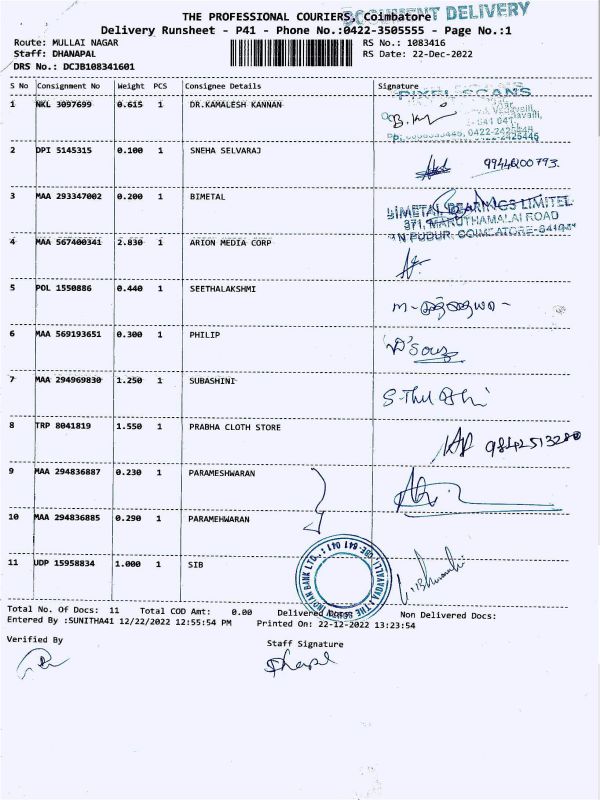 THE PROFESSIONAL COURIERS, Coimbatore
DOCUMENT DELIVERY
Delivery Runsheet - P41 - Phone No.:0422-3505555 - Page No.:1
Route: MULLAI NAGAR RS No.: 1083416
Staff: DHANAPAL RS Date: 22-Dec-2022
DRS No.: DCJB108341601
S No Consignment No Weight PCS Consignee Details Signature
PIXEL SCANS
1 NKL 3097699 0.615 1 DR.KAMALESH KANNAN
2 DPI 5145315 0.100 1 SNEHA SELVARAJ
3 MAA 293347002 0.200 1 BIMETAL
BIMETAL BEARINGS LIMITED
371, MARUTHAMALAI ROAD
4 MAA 567400341 2.830 1 ARION MEDIA CORP
5 POL 1550886 0.440 1 SEETHALAKSHMI
6 MAA 569193651 0.300 1 PHILIP
D'Souz
7 MAA 294969830 1.250 1 SUBASHINI
8 TRP 8041819 1.550 1 PRABHA CLOTH STORE
9 MAA 294836887 0.230 1 PARAMESHWARAN
10 MAA 294836885 0.290 1 PARAMEHWARAN
11 UDP 15958834 1.000 1 SIB
Total No. Of Docs: 11 Total COD Amt: 0.00 Delivered Docs: Non Delivered Docs:
Entered By :SUNITHA41 12/22/2022 12:55:54 PM Printed On: 22-12-2022 13:23:54
Verified By Staff Signature